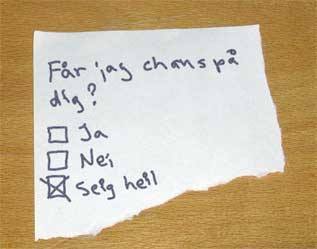 Får jag chans på
dig?
Ja
Nei
Seig heil